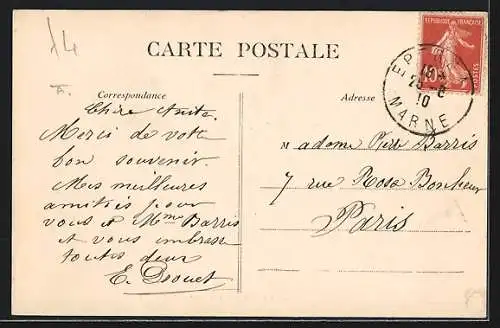 14
REPUBLIQUE FRANÇAISE
POSTES
EPERNAY
18
25-8
10
MARNE
CARTE POSTALE
Correspondance
Adresse
Chère Anita.
Merci de votre
bon souvenir.
Mes meilleures
amitiés pour
vous et Mme Barris
et vous embrasse
toutes deux
E. Drouet
Madame Barris
7 rue Rosa Bonheur
Paris